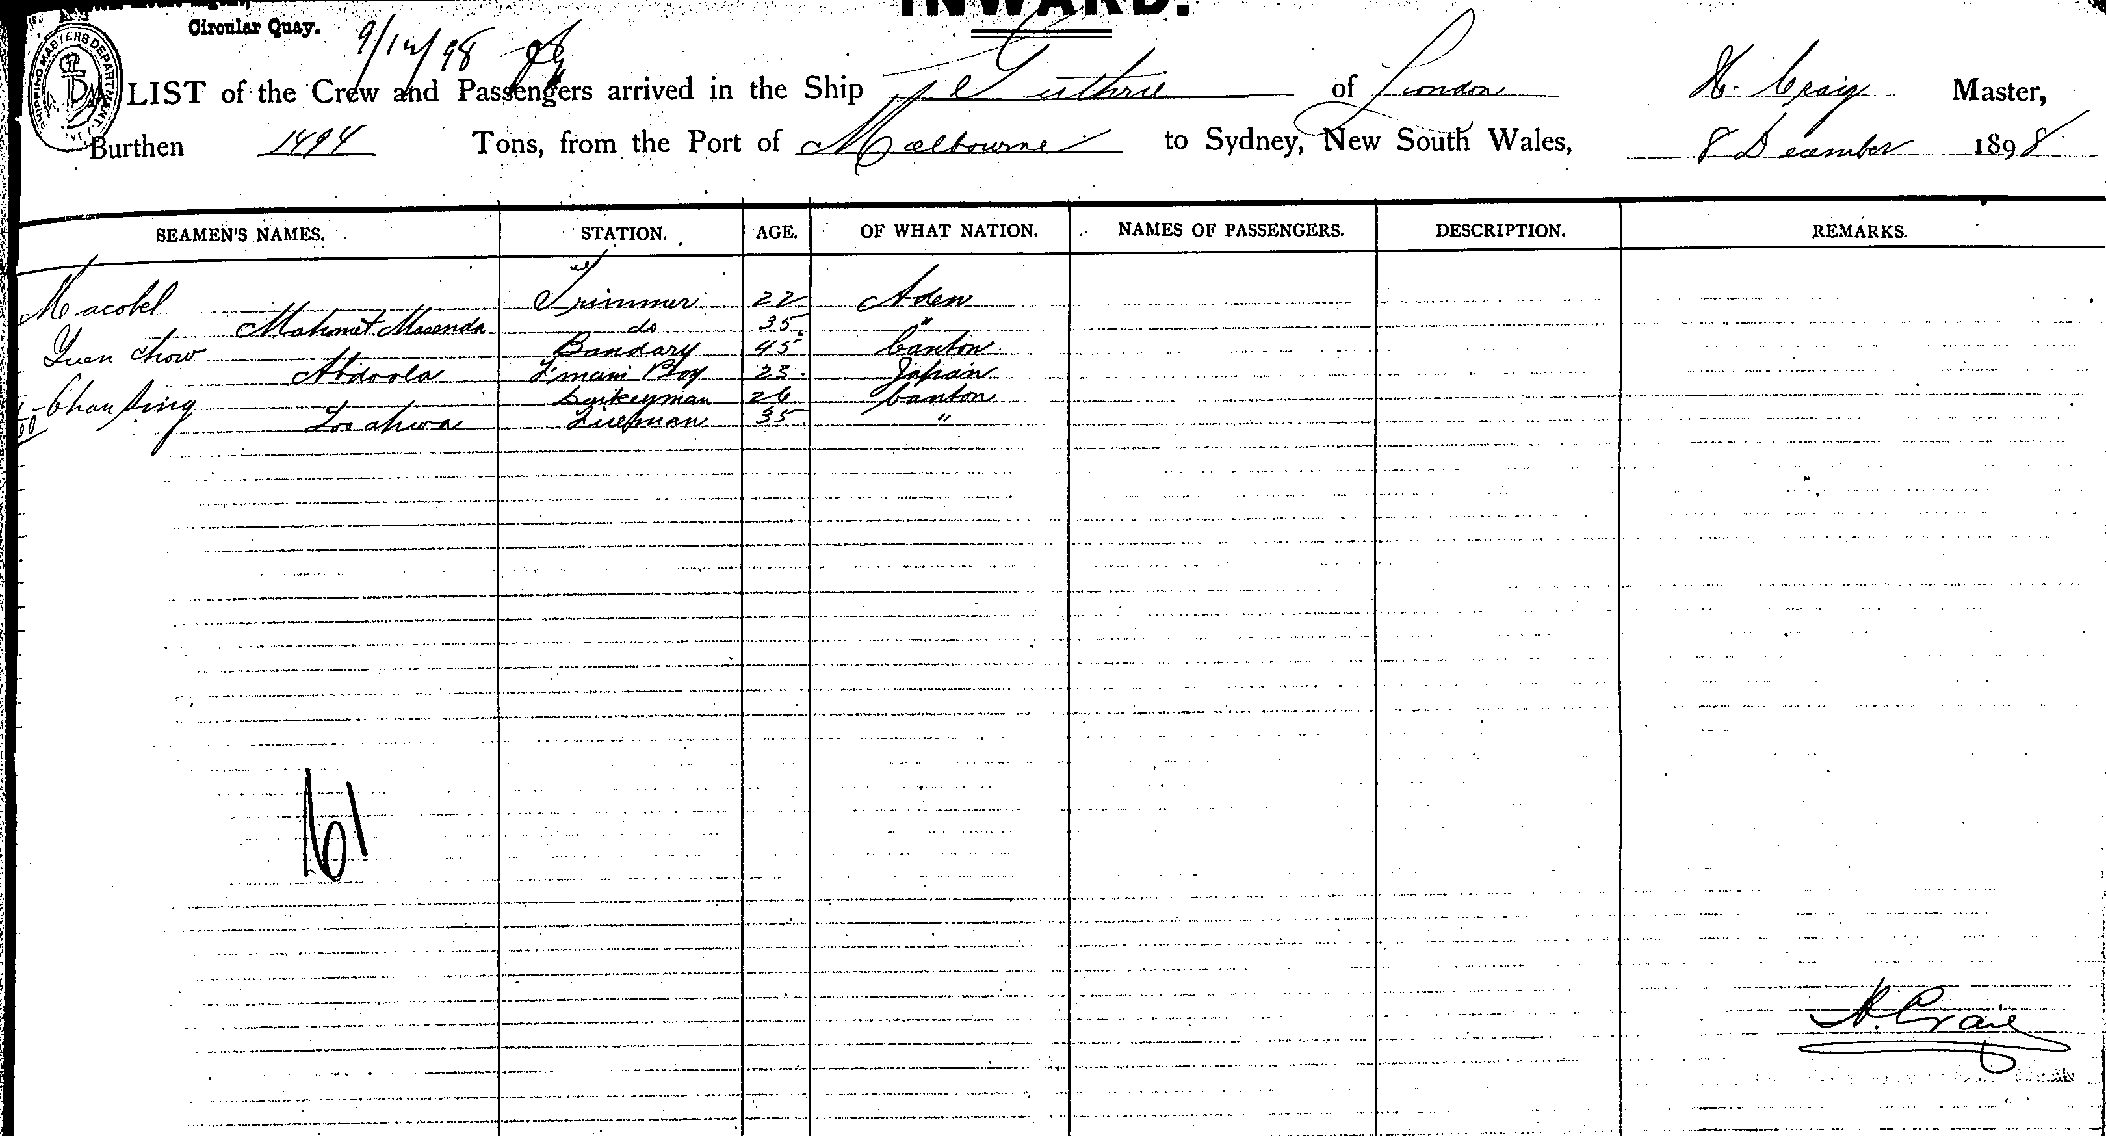 Circular Quay.
INWARD.
9/12/98
SHIPPING MASTERS DEPARTMENT
LIST of the Crew and Passengers arrived in the Ship Guthrie of London H. Craig Master,
Burthen 1494 Tons, from the Port of Melbourne to Sydney, New South Wales, 8 December 1898
SEAMEN'S NAMES. STATION. AGE. OF WHAT NATION. NAMES OF PASSENGERS. DESCRIPTION. REMARKS.
Macobel Trimmer 22 Aden
Mahomet Masenda do 35 "
Yuen Chow Bandary 45 Canton
Abdoola Boy 23 Japan
Chan Sing Donkeyman 26 Canton
Fireman 35 "
61
H. Craig